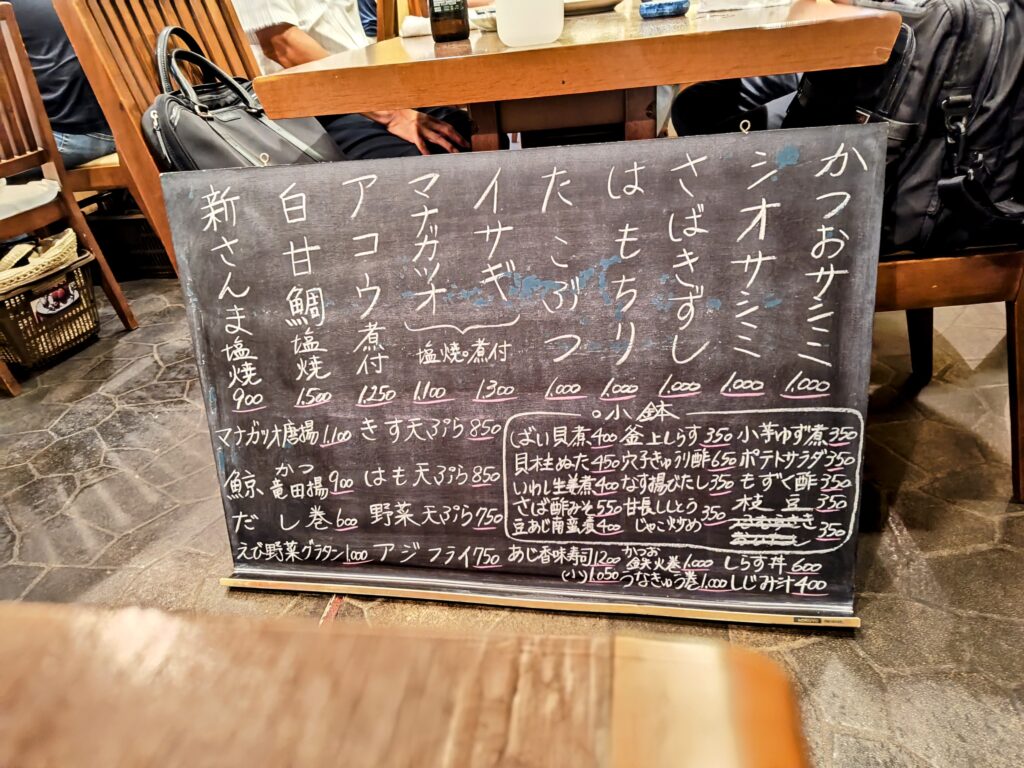 かつおサシミ 1,000
シオサシミ 1,000
さばきずし 1,000
はもちり 1,000
たこぶつ 1,000
イサギ 1,300
マナガツオ 1,100
塩焼。煮付
アコウ煮付 1,250
白甘鯛塩焼 1,500
新さんま塩焼 900
マナガツオ唐揚 1,100
きす天ぷら 850
鯨かつ竜田揚 900
はも天ぷら 850
だし巻 600
野菜天ぷら 750
えび野菜グラタン 1,000
アジフライ 750
○小鉢
ばい貝煮 400
釜上しらす 350
小芋ゆず煮 350
貝柱ぬた 450
穴子きゅうり酢 650
ポテトサラダ 350
いわし生姜煮 400
なす揚びたし 350
もずく酢 350
さば酢みそ 550
甘長ししとうじゃこ炒め 350
枝豆 350
豆あじ南蛮煮 400
350
あじ香味寿司 1,200
(小) 1,050
かつお鉄火巻 1,000
うなきゅう巻 1,000
しらす丼 600
しじみ汁 400